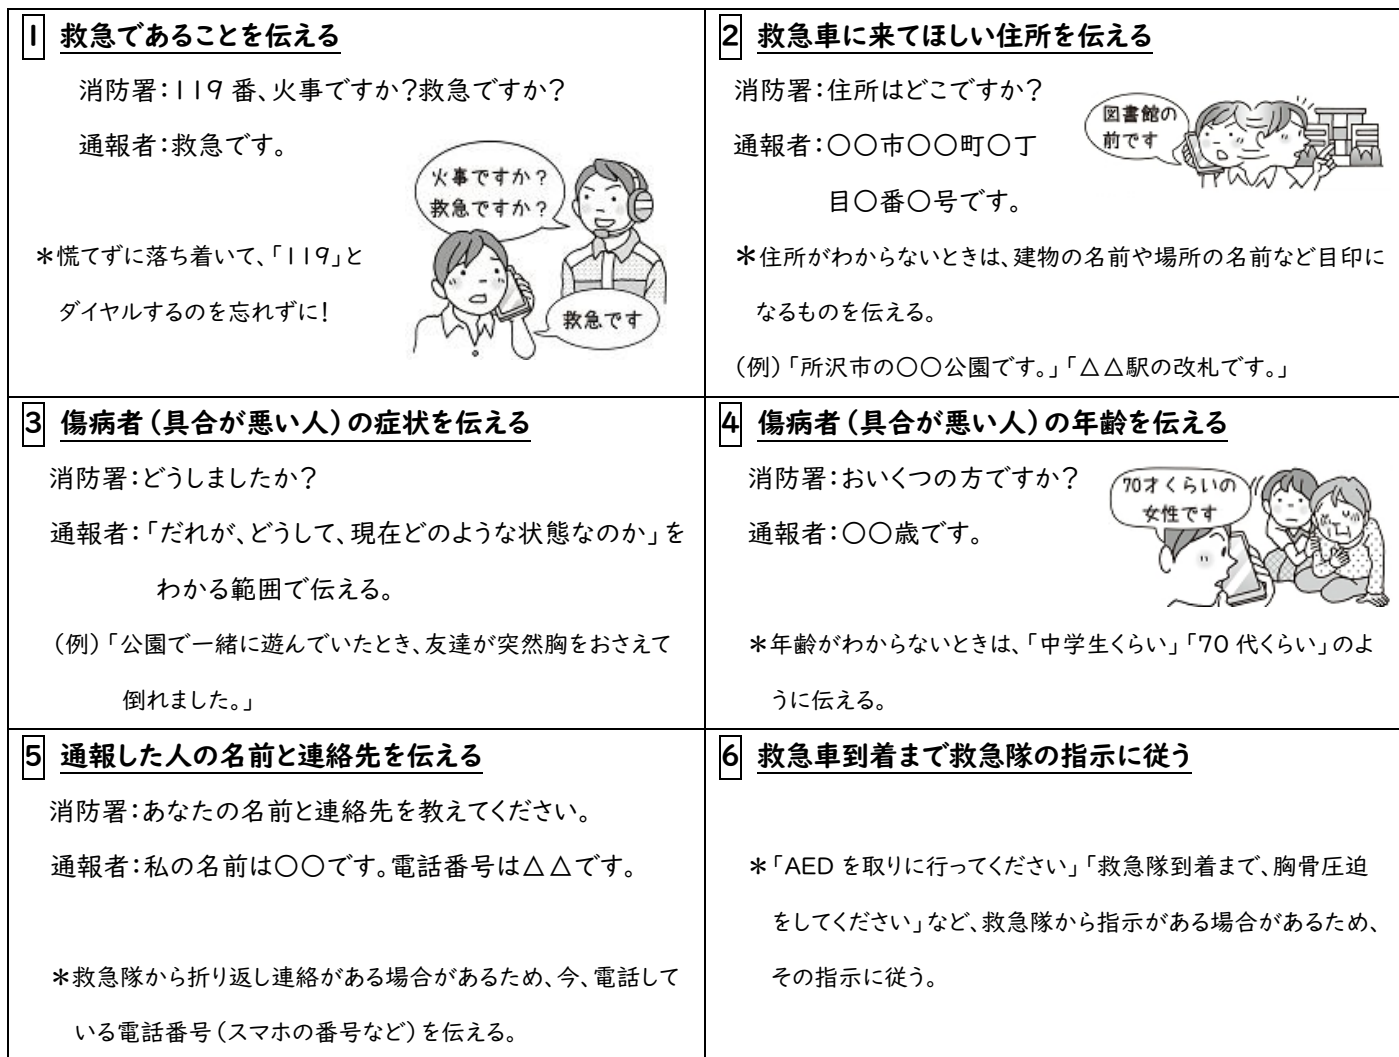 1 救急であることを伝える
消防署：119番、火事ですか？救急ですか？
通報者：救急です。
火事ですか？
救急ですか？
救急です
＊慌てずに落ち着いて、「119」と
ダイヤルするのを忘れずに！
2 救急車に来てほしい住所を伝える
消防署：住所はどこですか？
通報者：〇〇市〇〇町〇丁
目〇番〇号です。
図書館の
前です
＊住所がわからないときは、建物の名前や場所の名前など目印に
なるものを伝える。
（例）「所沢市の〇〇公園です。」「△△駅の改札です。」
3 傷病者（具合が悪い人）の症状を伝える
消防署：どうしましたか？
通報者：「だれが、どうして、現在どのような状態なのか」を
わかる範囲で伝える。
（例）「公園で一緒に遊んでいたとき、友達が突然胸をおさえて
倒れました。」
4 傷病者（具合が悪い人）の年齢を伝える
消防署：おいくつの方ですか？
通報者：〇〇歳です。
70才くらいの
女性です
＊年齢がわからないときは、「中学生くらい」「70代くらい」のよ
うに伝える。
5 通報した人の名前と連絡先を伝える
消防署：あなたの名前と連絡先を教えてください。
通報者：私の名前は〇〇です。電話番号は△△です。
＊救急隊から折り返し連絡がある場合があるため、今、電話して
いる電話番号（スマホの番号など）を伝える。
6 救急車到着まで救急隊の指示に従う
＊「AEDを取りに行ってください」「救急隊到着まで、胸骨圧迫
をしてください」など、救急隊から指示がある場合があるため、
その指示に従う。